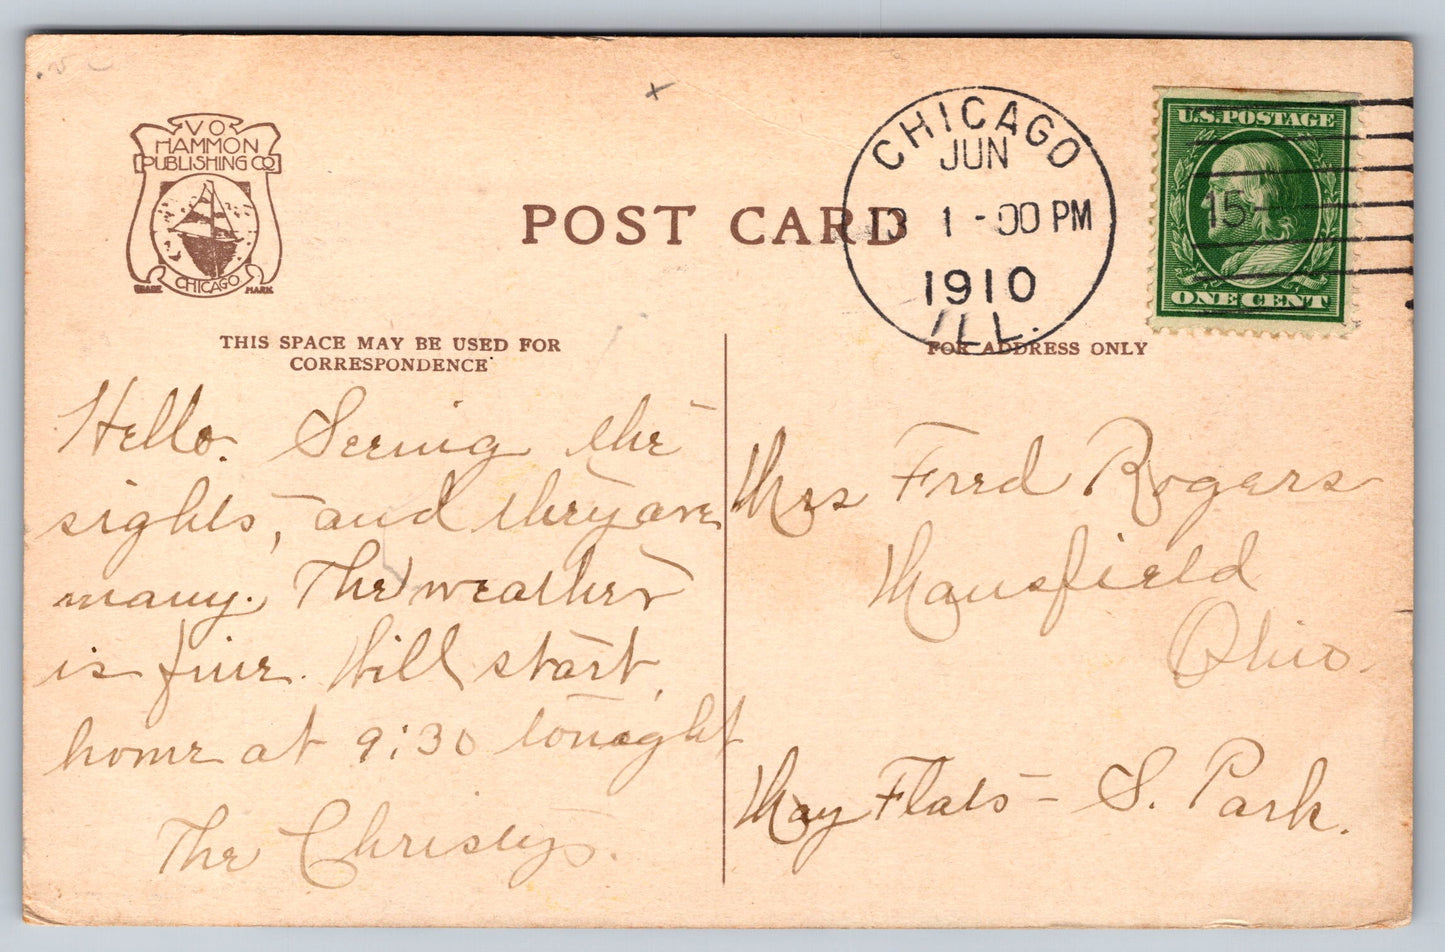 VO
HAMMON
PUBLISHING CO
CHICAGO
TRADE MARK
POST CARD
CHICAGO
JUN
3 1-00 PM
1910
ILL.
U.S. POSTAGE
15
ONE CENT
THIS SPACE MAY BE USED FOR
CORRESPONDENCE
FOR ADDRESS ONLY
Hello. Seeing the
sights, and they are
many. The weather
is fine. Will start
home at 9:30 tonight
The Christys.
Mrs Fred Rogers
Mansfield
Ohio.
May Flats - S. Park.